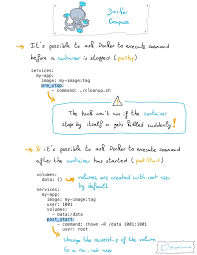 Docker
Compose
It's possible to ask Docker to execute command
before a container is stopped (preStop)
services:
my-app:
image: my-image:tag
pre_stop:
- command: ./cleanup.sh
The hook won't run if the container
stops by itself or gets killed suddenly!
& it's possible to ask Docker to execute command
after the container has started (postStart)
volumes:
data: {}
volumes are created with root user
by default
services:
my-app:
image: my-image:tag
user: 1001
volumes:
- data:/data
post_start:
- command: chown -R /data 1001:1001
user: root
change the ownership of the volume
to a non-root user